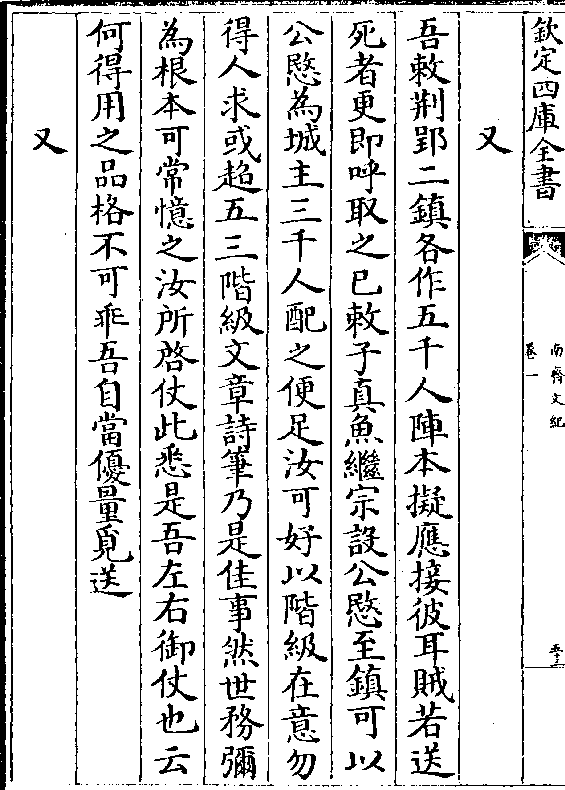 欽定四庫全書
南齊文紀
卷一
五十三
又
吾敕荆郢二鎮各作五千人陣本擬應接彼耳賊若送
死者更即呼取之已敕子真魚繼宗設公愍至鎮可以
公愍為城主三千人配之便足汝可好以階級在意勿
得人求或超五三階級文章詩筆乃是佳事然世務彌
為根本可常憶之汝所啓仗此悉是吾左右御仗也云
何得用之品格不可乖吾自當優量覓送
又